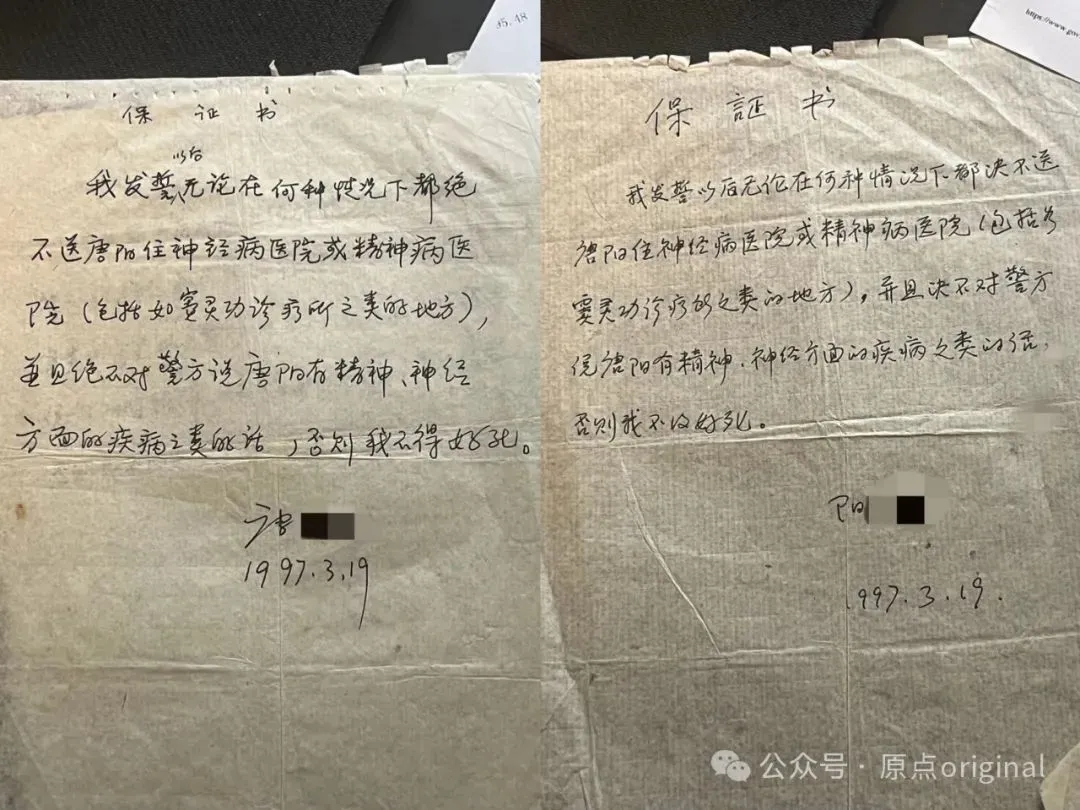 35.48
保 证 书
以后
我发誓无论在何种情况下都绝
不送唐阳住神经病医院或精神病医
院（包括如赛灵功诊疗所之类的地方），
并且绝不对警方说唐阳有精神、神经
方面的疾病之类的话，否则我不得好死。
唐
1997.3.19
https://www.gov
保 証 书
我发誓以后无论在何种情况下都决不送
唐阳住神经病医院或精神病医院（包括
赛灵功诊疗所之类的地方），并且决不对警方
说唐阳有精神、神经方面的疾病之类的话，
否则我不得好死。
阳
1997.3.19.
公众号·原点original